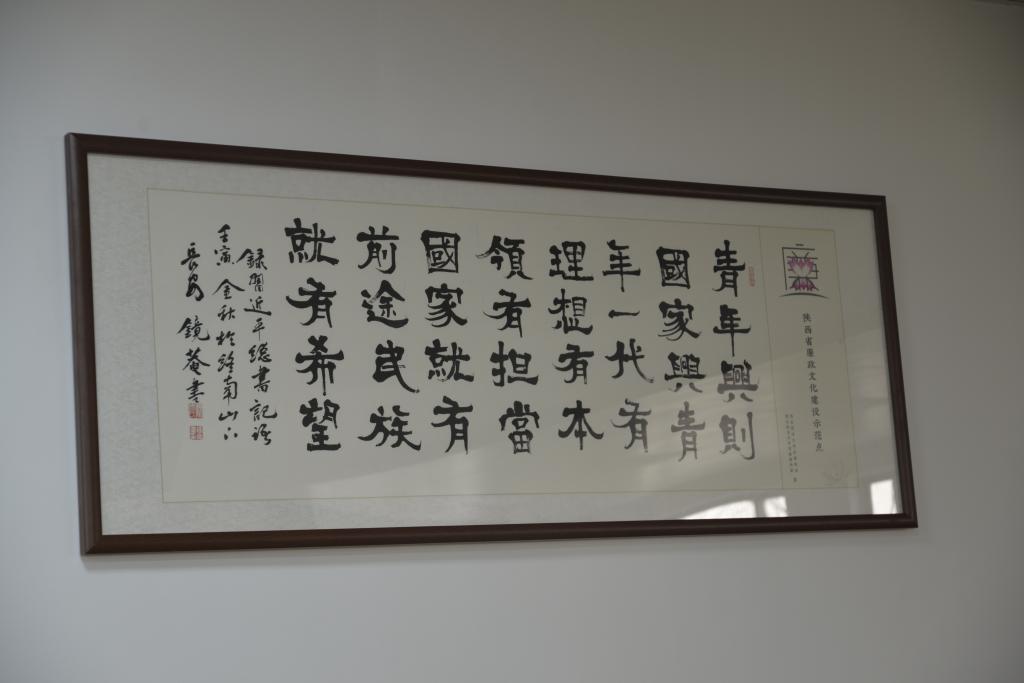 陕西省廉政文化建设示范点
青年興則
國家興青
年一代有
理想有本
領有担當
國家就有
前途民族
就有希望
録習近平總書記語
壬寅金秋於終南山下
長安鏡菴書